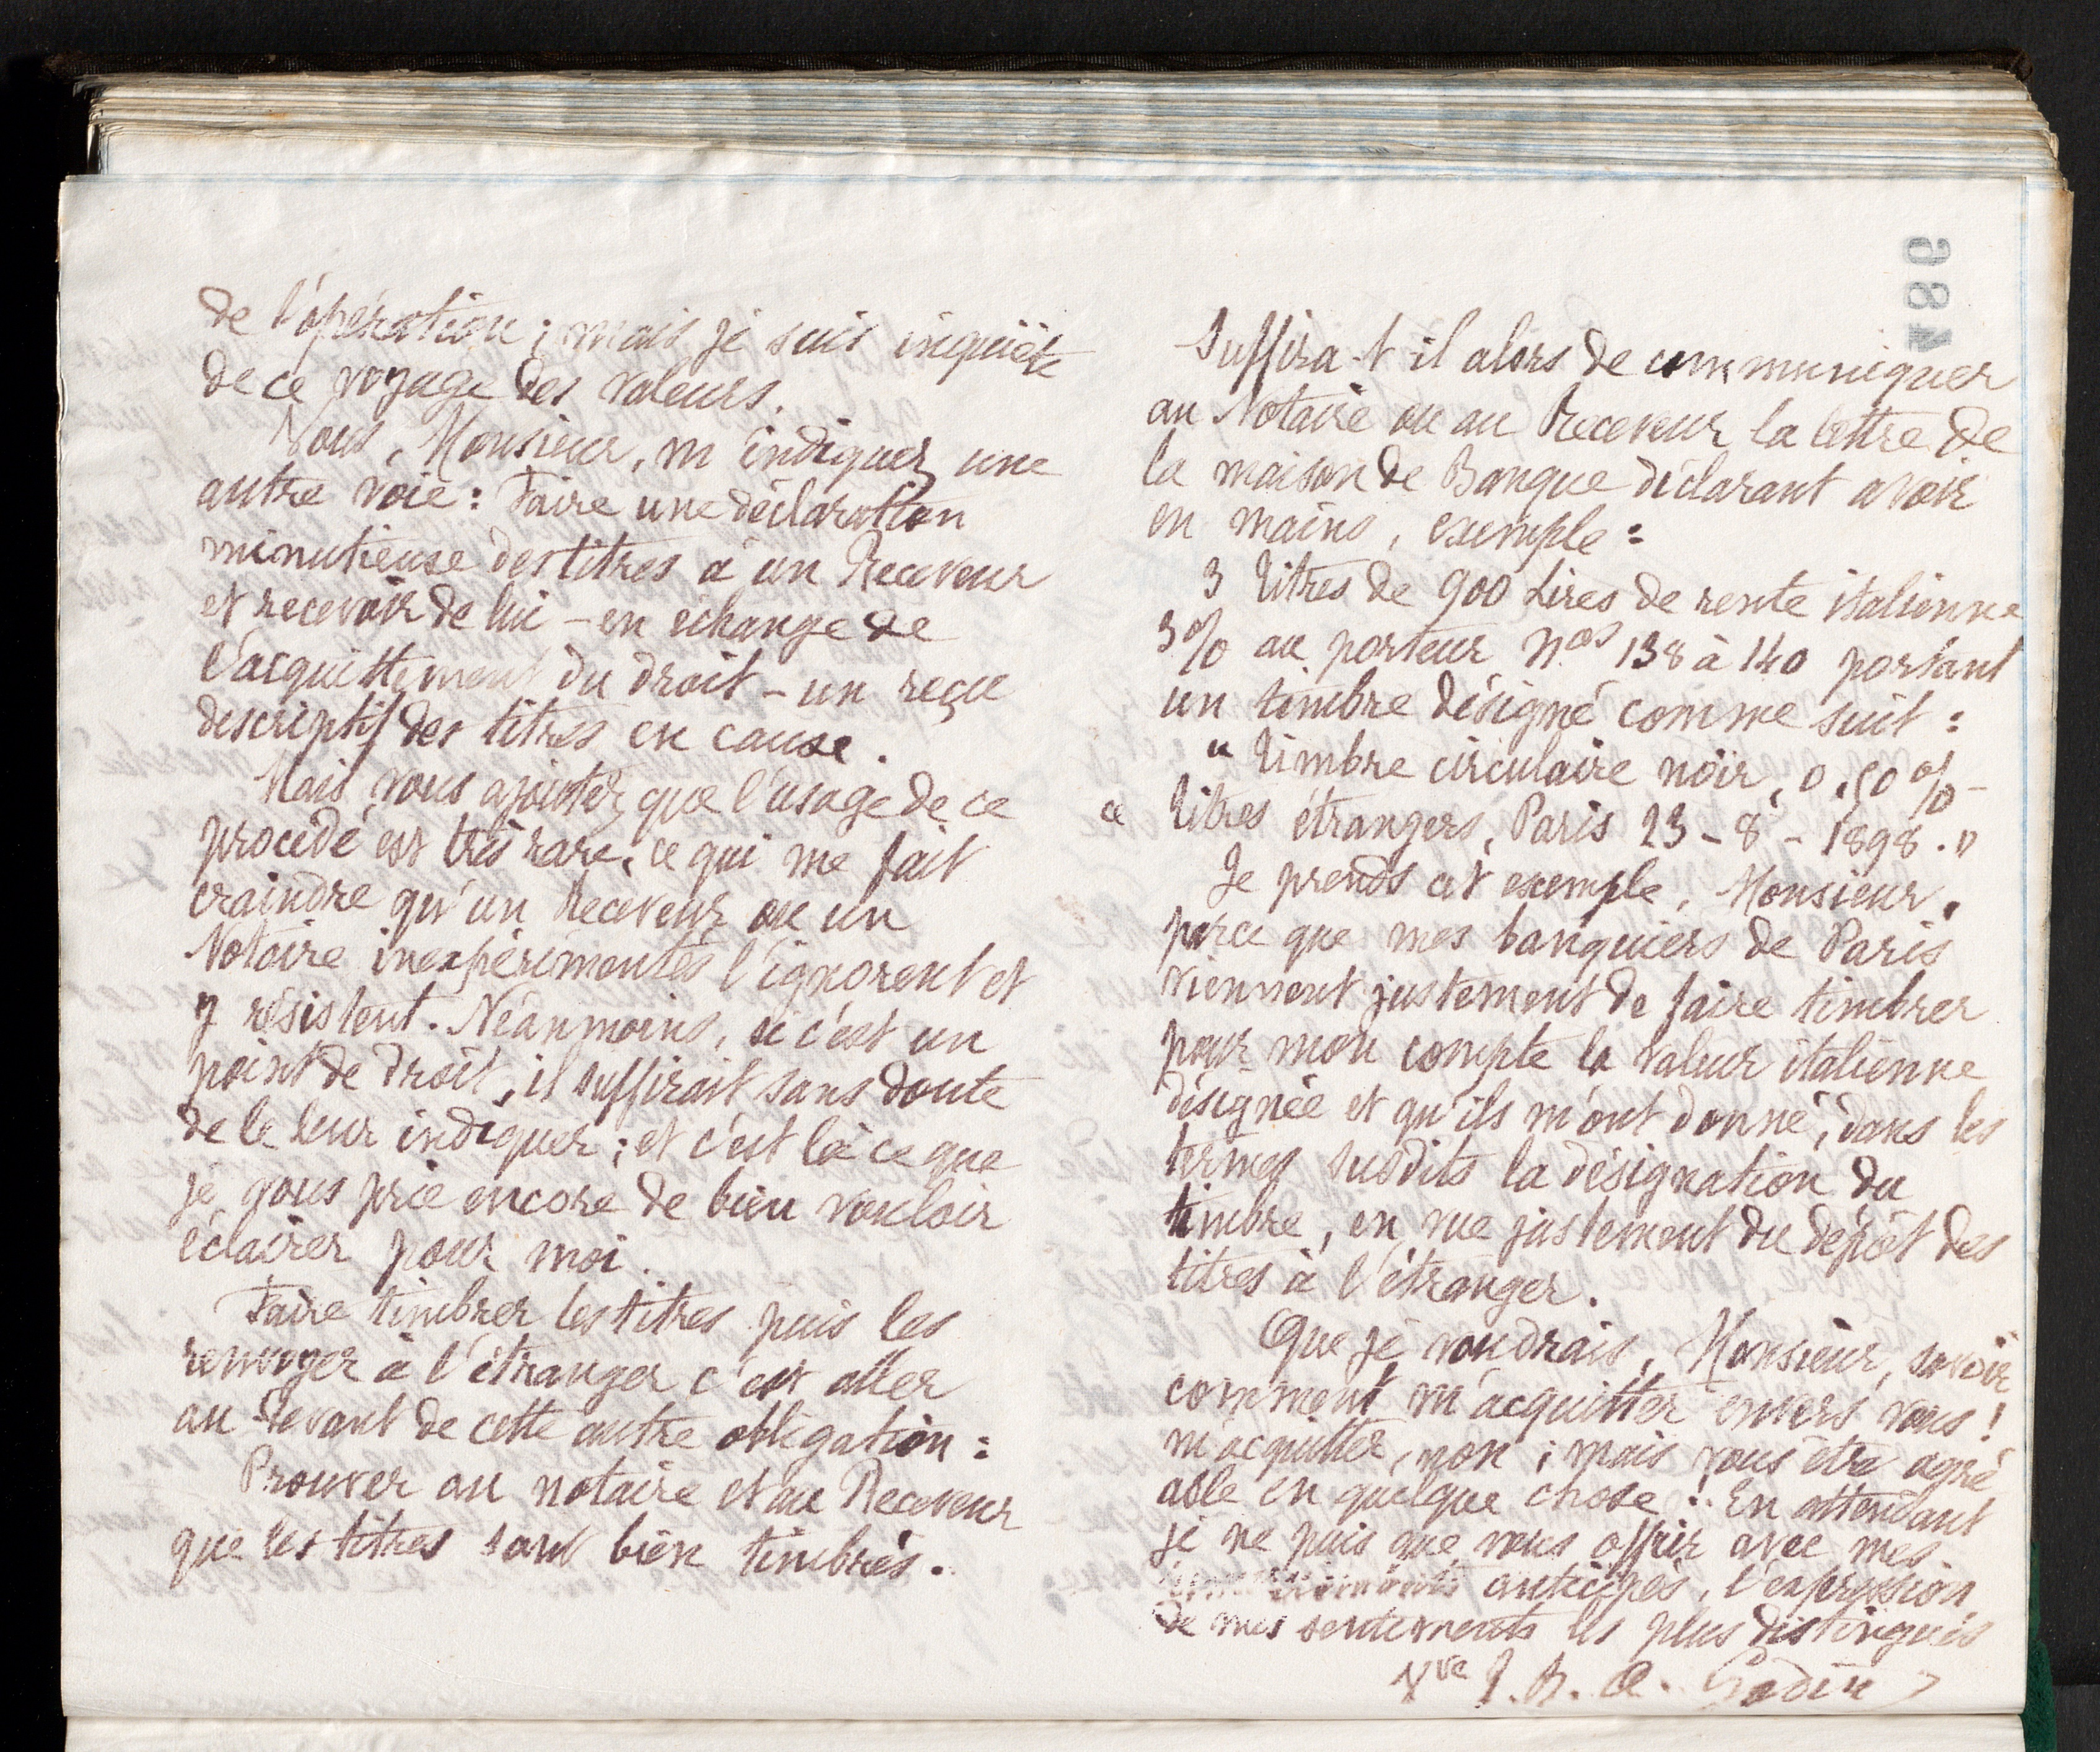 de l'opération ; mais je suis inquiète
de ce voyage des valeurs.
Vous, Monsieur, m'indiquez une
autre voie : Faire une déclaration
minutieuse des titres à un Receveur
et recevoir de lui - en échange de
l'acquittement du droit - un reçu
descriptif des titres en cause.
Mais vous ajoutez que l'usage de ce
procédé est très rare, ce qui me fait
craindre qu'un Receveur ou un
Notaire inexpérimentés l'ignorent et
y résistent. Néanmoins, si c'est un
point de droit, il suffirait sans doute
de le leur indiquer ; et c'est là ce que
je vous prie encore de bien vouloir
éclairer pour moi.
Faire timbrer les titres puis les
renvoyer à l'étranger c'est aller
au-devant de cette autre obligation :
Prouver au notaire et au Receveur
que les titres sont bien timbrés.
984
Suffira-t-il alors de communiquer
au Notaire ou au Receveur la lettre de
la maison de Banque déclarant avoir
en mains, exemple :
3 titres de 900 Lires de rente italienne
3% au porteur Nos 138 à 140 portant
un timbre désigné comme suit :
" Timbre circulaire noir, 0,50 % -
" Titres étrangers, Paris 23 - 8 - 1898. "
Je prends cet exemple, Monsieur,
parce que mes banquiers de Paris
viennent justement de faire timbrer
pour mon compte la valeur italienne
désignée et qu'ils m'ont donné, dans les
termes susdits la désignation du
timbre, en vue justement du dépôt des
titres à l'étranger.
Que je voudrais, Monsieur, savoir
comment m'acquitter envers vous !
m'acquitter, non ; mais vous être agré
able en quelque chose ! En attendant
je ne puis que vous offrir avec mes
anticipés, l'expression
de mes sentiments les plus distingués
Vve J. B. A. Godin